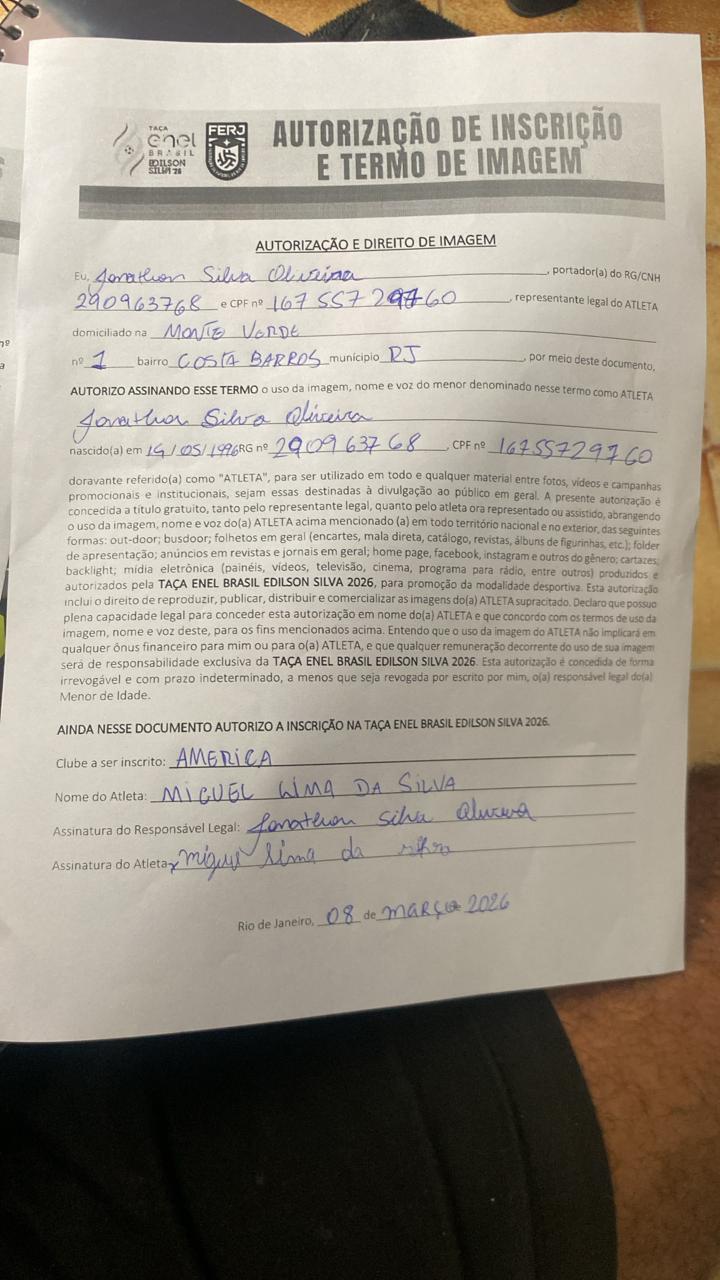 TAÇA
enel
BRASIL
EDILSON
SILVA '26
FERJ
AUTORIZAÇÃO DE INSCRIÇÃO
E TERMO DE IMAGEM
AUTORIZAÇÃO E DIREITO DE IMAGEM
Eu, Jonathon Silva Oliveira, portador(a) do RG/CNH
290963768 e CPF nº 167 557 297 60, representante legal do ATLETA
domiciliado na MONTE VERDE
nº 1 bairro COSTA BARROS munícipio RJ, por meio deste documento,
AUTORIZO ASSINANDO ESSE TERMO o uso da imagem, nome e voz do menor denominado nesse termo como ATLETA
Jonathon Silva Oliveira
nascido(a) em 14/05/1996 RG nº 290963768, CPF nº 16755729760
doravante referido(a) como "ATLETA", para ser utilizado em todo e qualquer material entre fotos, vídeos e campanhas
promocionais e institucionais, sejam essas destinadas à divulgação ao público em geral. A presente autorização é
concedida a título gratuito, tanto pelo representante legal, quanto pelo atleta ora representado ou assistido, abrangendo
o uso da imagem, nome e voz do(a) ATLETA acima mencionado (a) em todo território nacional e no exterior, das seguintes
formas: out-door; busdoor; folhetos em geral (encartes, mala direta, catálogo, revistas, álbuns de figurinhas, etc.); folder
de apresentação; anúncios em revistas e jornais em geral; home page, facebook, instagram e outros do gênero; cartazes;
backlight; mídia eletrônica (painéis, vídeos, televisão, cinema, programa para rádio, entre outros) produzidos e
autorizados pela TAÇA ENEL BRASIL EDILSON SILVA 2026, para promoção da modalidade desportiva. Esta autorização
inclui o direito de reproduzir, publicar, distribuir e comercializar as imagens do(a) ATLETA supracitado. Declaro que possuo
plena capacidade legal para conceder esta autorização em nome do(a) ATLETA e que concordo com os termos de uso da
imagem, nome e voz deste, para os fins mencionados acima. Entendo que o uso da imagem do ATLETA não implicará em
qualquer ônus financeiro para mim ou para o(a) ATLETA, e que qualquer remuneração decorrente do uso de sua imagem
será de responsabilidade exclusiva da TAÇA ENEL BRASIL EDILSON SILVA 2026. Esta autorização é concedida de forma
irrevogável e com prazo indeterminado, a menos que seja revogada por escrito por mim, o(a) responsável legal do(a)
Menor de Idade.
AINDA NESSE DOCUMENTO AUTORIZO A INSCRIÇÃO NA TAÇA ENEL BRASIL EDILSON SILVA 2026.
Clube a ser inscrito: AMERICA
Nome do Atleta: MIGUEL LIMA DA SILVA
Assinatura do Responsável Legal: Jonathon Silva Oliveira
Assinatura do Atleta: x Miguel lima da silva
Rio de Janeiro, 08 de MARÇO 2026